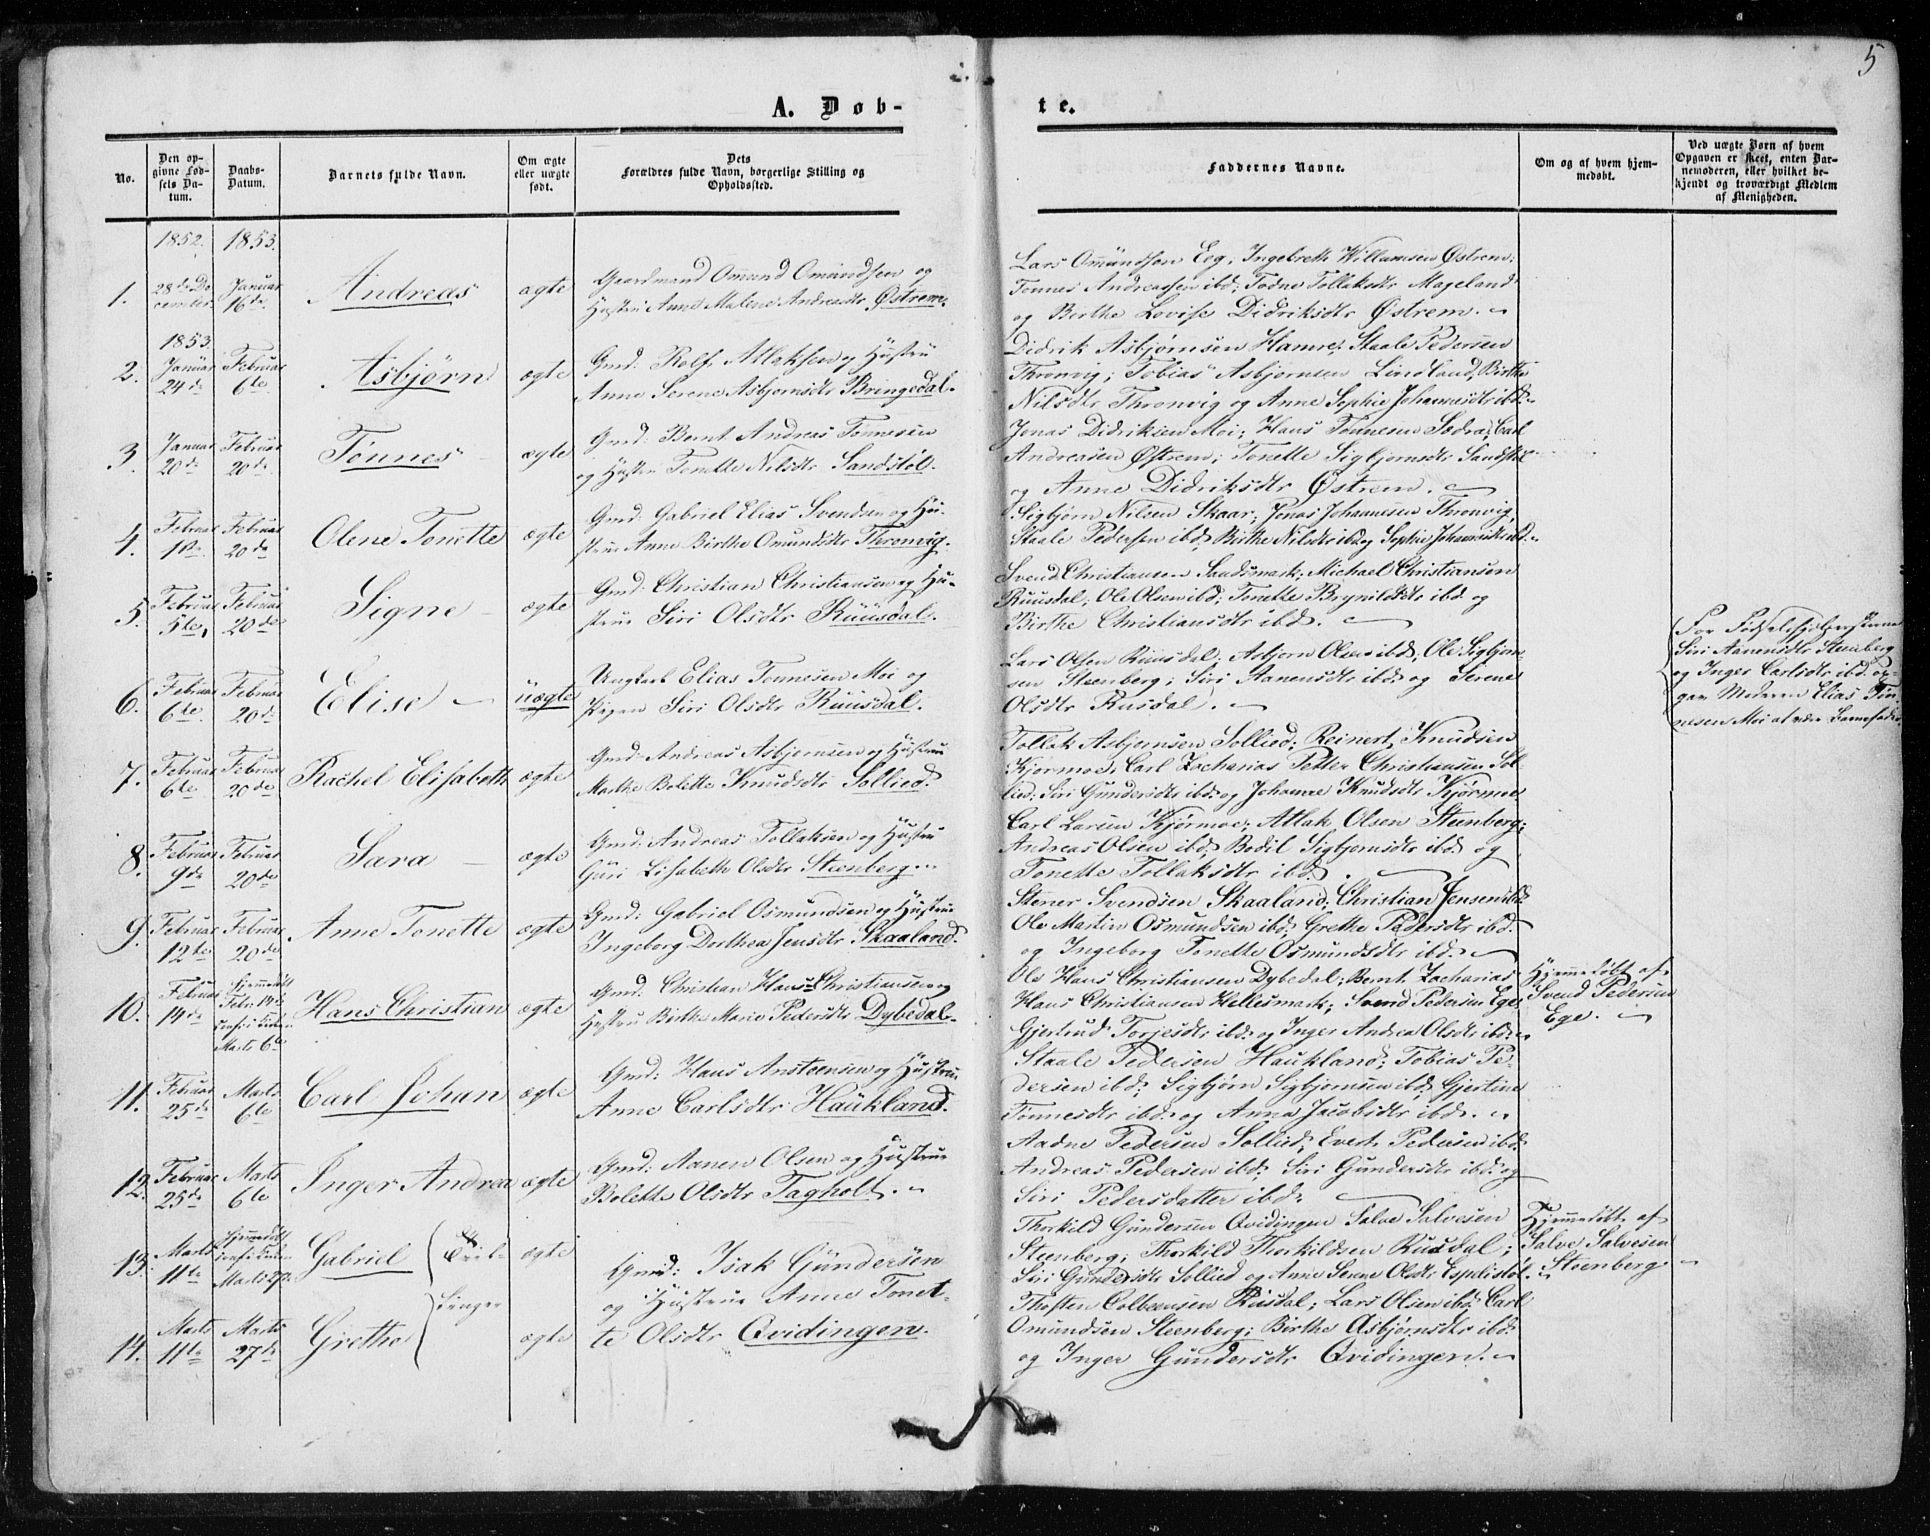 5
A. Døb-
te.
No.
Den op-
givne Fød-
sels Da-
tum.
Daabs-
Datum.
Barnets fulde Navn.
Om ægte
eller uægte
født.
Dets
Forældres fulde Navn, borgerlige Stilling og
Opholdssted.
Faddernes Navne.
Om og af hvem hjem-
medøbt.
Ved uægte Børn af hvem
Opgaven er skeet, enten Bar-
nemoderen, eller hvilket be-
kjendt og troværdigt Medlem
af Menigheden.
1852.
1853.
1.
28de De-
cember
Januar
16de
Andreas
ægte
Gaardmand Omund Omundsen og
Hustru Anne Malene Andreasdtr Østrem.
Lars Omundsen Eeg, Ingebreth Willumsen Østrem;
Tonnes Andreassen ibd; Todne Tollaksdtr Mageland
og Birthe Lovise Didriksdtr Østrem.
1853.
2.
Januar
24de
Februar
6te
Asbjørn
ægte
Gmd: Rolf Atlaksen og Hustru
Anne Serene Asbjørnsdtr Bringedal.
Didrik Asbjørnsen Hamre; Staale Pedersen
Thronvig; Tobias Asbjørnsen Lindland; Birthe
Nilsdtr Thronvig og Anne Sophie Johannesdtr ibd.
3.
Januar
20de
Februar
20de
Tønnes
ægte
Gmd: Bernt Andreas Tønnesen
og Hustru Tonette Nilsdtr Sandstøl.
Jonas Didriksen Moi; Hans Tønnesen Sædra; Carl
Andreasen Østrem; Tonette Sigbjørnsdtr Sandstøl
og Anne Didriksdtr Østrem.
4.
Februar
1ste
Februar
20de
Olene Tonette
ægte
Gmd: Gabriel Elias Svendsen og Hu-
stru Anne Birthe Omundsdtr Thronvig.
Sigbjørn Nilsen Skaar; Jonas Johannesen Thronvig,
Staale Pedersen ibd; Birthe Nilsdtr ibd og Sophie Johannesdtr ibd.
5.
Februar
5te
Februar
20de
Signe
ægte
Gmd: Christian Christiansen og Hu-
stru Siri Olsdtr Ruusdal.
Svend Christiansen Sandsmark; Michael Christiansen
Ruusdal; Ole Olsen ibd; Tonette Brynildsdtr ibd og
Birthe Christiansdtr ibd.
6.
Februar
6te
Februar
20de
Elise
uægte
Ungkarl Elias Tønnesen Moi og
Pigen Siri Olsdtr Ruusdal.
Lars Olsen Ruusdal; Asbjørn Olsen ibd; Ole Sigbjørn-
sen Steenberg; Siri Aanensdtr ibd og Serene
Olsdtr Rusdal.
For Fødselshjælperskerne
Siri Aanensdtr Steenberg
og Inger Carlsdtr ibd op-
gav Moderen Elias Tøn-
nesen Moi at være Barnefader.
7.
Februar
6te
Februar
20de
Rachel Elisabeth
ægte
Gmd: Andreas Asbjørnsen og Hustru
Marthe Bolette Knudsdtr Sollied.
Tollak Asbjørnsen Sollied; Reinert Knudsen
Kjørmoe; Carl Zacharias Petter Christiansen Sol-
lied; Siri Gundersdtr ibd og Johanne Knudsdtr Kjørmoe
8.
Februar
9de
Februar
20de
Sara
ægte
Gmd: Andreas Tollaksen og Hustru
Guri Lisabeth Olsdtr Steenberg.
Carl Larsen Kjørmoe; Atlak Olsen Steenberg;
Andreas Olsen ibd; Bodil Sigbjørnsdtr ibd og
Tonette Tollaksdtr ibd.
9.
Februar
12te
Februar
20de
Anne Tonette
ægte
Gmd: Gabriel Osmundsen og Hustru
Ingeborg Dorthea Jensdtr Skaaland.
Stener Svendsen Skaaland; Christian Jensen ibd
Ole Martin Osmundsen ibd; Grethe Pedersdtr ibd
og Ingeborg Tonette Osmundsdtr ibd.
10.
Februar
14de
Hjemmedøbt
Febr. 14de
Marts 6te
Hans Christian
ægte
Gmd: Christian Hans Christiansen og
Hustru Birthe Marie Pedersdtr Dybedal.
Ole Hans Christiansen Dybedal; Bernt Zacharias
Hans Christiansen Hellesmark; Svend Pedersen Ege;
Gjertrud Torjesdtr ibd og Inger Andrea Olsdtr ibd.
Hjemmedøbt af
Svend Pedersen
Ege.
11.
Februar
25de
Marts
6te
Carl Johan
ægte
Gmd: Hans Ansteensen og Hustru
Anne Carlsdtr Haukland.
Staale Pedersen Haukland; Tobias Pe-
dersen ibd; Sigbjørn Sigbjørnsen ibd; Gjertine
Tønnesdtr ibd og Anna Jacobsdtr ibd.
12.
Februar
25de
Marts
6te
Inger Andrea
ægte
Gmd: Aanen Olsen og Hustrue
Bolette Olsdtr Tagholt.
Aadne Pedersen Sollied; Evert Pedersen ibd;
Andreas Pedersen ibd; Siri Gundersdtr ibd og
Siri Pedersdatter ibd.
13.
Marts
11te
Hjemmedøbt
Marts 27de
Gabriel
Tvil-
linger
ægte
Gmd: Isak Gundersen
og Hustrue Anne Tonet-
te Olsdtr Qvidingen.
Thorkild Gundersen Qvidingen Salve Salvesen
Steenberg; Thorkild Thorkildsen Rusdal;
Siri Gundersdtr Sollied og Anne Serene Olsdtr Espelistøl.
Hjemmedøbt af
Salve Salvesen
Steenberg.
14.
Marts
11te
Marts
27de
Grethe
ægte
Thosten Colbeensen Rusdal; Lars Olsen ibd; Carl
Omundsen Steenberg; Birthe Asbjørnsdtr ibd
og Inger Gundersdtr Qvidingen.